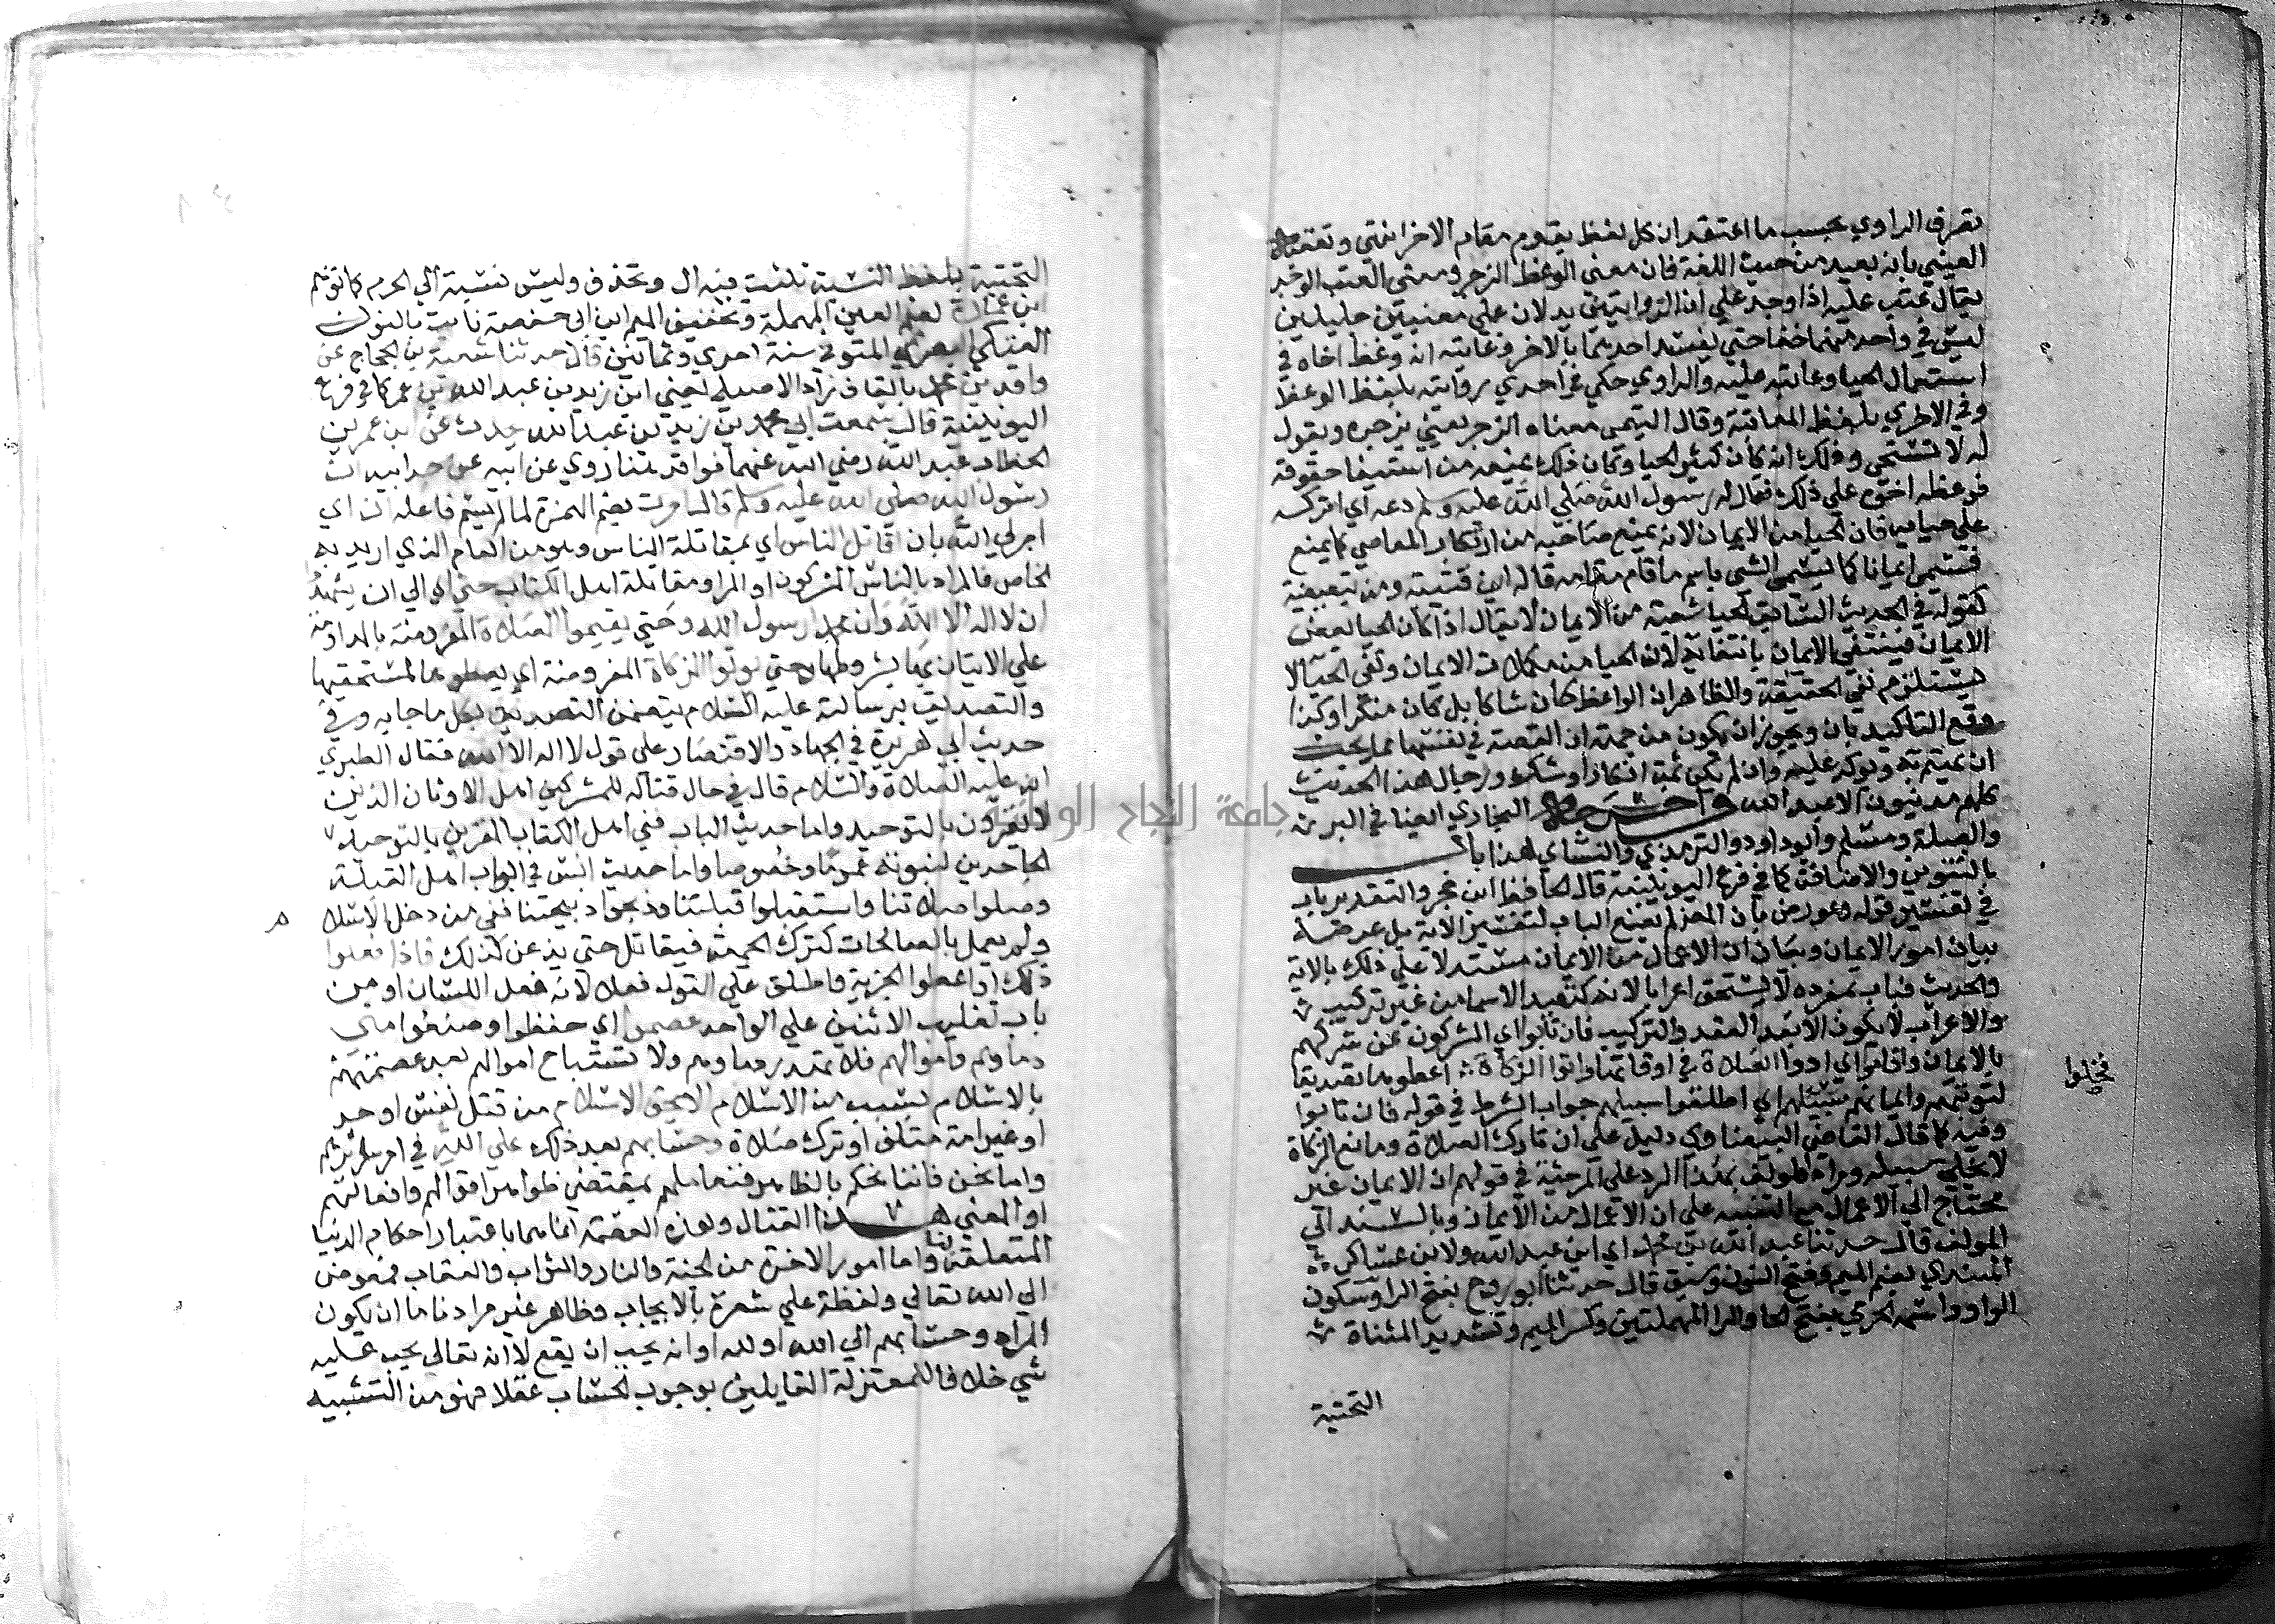 تصرف الراوي بحسب ما اعتقد ان كل لفظ يقوم مقام الاخر انتهى وتعقبه
العيني بانه بعيد من حيث اللغة فان معنى الوعظ الزجر ومعنى العتب الوجد
يقال عتب عليه اذا وجد علي ان الروايتين يدلان علي معنيين جليلين
ليس في واحد منهما خفا حتى يفسر احدهما بالاخر وغايته انه وعظ اخاه في
استعمال الحيا وعاتبه عليه والراوي حكي في احدي روايتيه بلفظ الوعظ
وفي الاخري بلفظ المعاتبة وقال التيمي معناه الزجر يعني يزجره ويقول
له لا تستحي وذلك انه كان كثير الحيا وكان ذلك يمنعه من استيفا حقوقه
فوعظه اخوه علي ذلك فقال له رسول الله صلي الله عليه وسلم دعه اي اتركه
علي حيايه فان الحيا من الايمان لانه يمنع صاحبه من ارتكاب المعاصي كما يمنع
فسمي ايمانا كما يسمي الشي باسم ما قام مقامه قاله ابن قتيبة ومن تبعيضية
كقوله في الحديث السابق الحيا شعبة من الايمان لا يقال اذا كان الحيا بعض
الايمان فينتفي الايمان بانتفائه لان الحيا من مكملات الايمان ونفي الكمال لا
يستلزم نفي الحقيقة والظاهر ان الواعظ كان شاكا بل كان منكرا وكذا
وقع التاكيد بان ويجوز ان يكون من جهة ان القصة في نفسها مما يجب
ان يهتم به ويوكد عليه وان لم يكن ثمة انكار او شك ورجال هذا الحديث
كلهم مدنيون الا عبد الله واخرجه البخاري ايضا في البر
والصلة ومسلم وابو داود والترمذي والنساي هذا باب
بالتنوين والاضافة كما في فرع اليونينية قال الحافظ ابن حجر والتقدير باب
في تفسير قوله وعورض بان المصنف لم يضع الباب لتفسير الاية بل غرضه
بيان امور الايمان وبيان ان الاعمال من الايمان مستدلا علي ذلك بالاية
والحديث فباب بمفرده لا يستحق اعرابا لانه كتعديد الاسما من غير تركيب
والاعراب لا يكون الا بعد العقد والتركيب فان تابوا اي المشركون عن شركهم
بالايمان واقاموا اي ادوا الصلاة في اوقاتها واتوا الزكاة اعطوها تصديقا
فخلوا
لتوبتهم وايمانهم سبيلهم اي اطلقوا سبيلهم جواب الشرط في قوله فان تابوا
وفيه كما قال القاضي البيضاوي دليل علي ان تارك الصلاة ومانع الزكاة
لا يخلي سبيله ومراد المولف بهذا الرد علي المرجئة في قولهم ان الايمان غير
محتاج الي الاعمال مع التنبيه علي ان الاعمال من الايمان وبالسند الي
المولف قال حدثنا عبد الله بن محمد اي ابن عبد الله ولابن عساكر
المسندي بضم الميم وفتح النون وسبق قال حدثنا ابو روح بفتح الرا وسكون
الواو واسمه الحرمي بفتح الحا والرا المهملتين وكسر الميم وتشديد المثناة
التحتية
التحتية بلفظ النسبة تثبت فيه ال وتحذف وليس نسبة الي الحرم كما توهم
ابن عمارة بضم العين المهملة وتخفيف الميم ابن ابي حفصة نابت بالنون
العتكي البصري المتوفي سنة احدي ومائتين قال حدثنا شعبة بن الحجاج عن
واقد بن محمد بالقاف زاد الاصيلي يعني ابن زيد بن عبد الله بن عمر كما في فرع
اليونينية قال سمعت ابي محمد بن زيد بن عبد الله يحدث عن ابن عمر بن
الخطاب عبد الله رضي الله عنهما فواقد هنا روي عن ابيه عن جد ابيه ان
رسول الله صلي الله عليه وسلم قال امرت بضم الهمزة لما لم يسم فاعله ان اي
امرني الله بان اقاتل الناس اي بمقاتلة الناس وهو من العام الذي اريد به
الخاص فالمراد بالناس المشركون او المراد مقاتلة اهل الكتاب حتي اي الي ان يشهدوا
ان لا اله الا الله وان محمدا رسول الله وحتي يقيموا الصلاة المفروضة بالمداومة
علي الاتيان بها بشروطها وحتي يوتوا الزكاة المفروضة اي يعطوها لمستحقيها
والتصديق برسالته عليه السلام يتضمن التصديق بكل ما جا به وفي
حديث ابي هريرة في الجهاد والاقتصار علي قول لا اله الا الله فقال الطبري
انه عليه الصلاة والسلام قال في حال قتاله للمشركين اهل الاوثان الذين
لا يقرون بالتوحيد واما حديث الباب ففي اهل الكتاب المقرين بالتوحيد
الجاحدين لنبوته عموما وخصوصا واما حديث انس في ابواب اهل القبلة
وصلوا صلاتنا واستقبلوا قبلتنا وذبحوا ذبيحتنا ففي من دخل الاسلام
ولم يعمل بالصالحات كترك الجمعة فيقاتل حتي يذعن لذلك فاذا فعلوا
ذلك او اعطوا الجزية فاطلق علي القول فعلا لانه فعل اللسان او من
باب تغليب الاثنين علي الواحد عصموا اي حفظوا ومنعوا مني
دماوهم واموالهم فلا تهدر دماوهم ولا تستباح اموالهم بعد عصمتهم
بالاسلام بسبب من الاسلام الا بحق الاسلام من قتل نفس او حد
او غرامة متلف او ترك صلاة وحسابهم بعد ذلك علي الله في امر سرائرهم
واما نحن فاننا نحكم بالظاهر فنعاملهم بمقتضي ظواهر اقوالهم وافعالهم
او المعني هذا القتال وهذه العصمة انما هما باعتبار احكام الدنيا
المتعلقة بنا واما امور الاخرة من الجنة والنار والثواب والعقاب فمفوض
الي الله تعالي ولفظة علي مشعرة بالايجاب فظاهره غير مراد فاما ان يكون
المراد وحسابهم الي الله او لله او انه يجب ان يقع لا انه تعالي يجب عليه
شي خلافا للمعتزلة القايلين بوجوب الحساب عقلا فهو من التشبيه